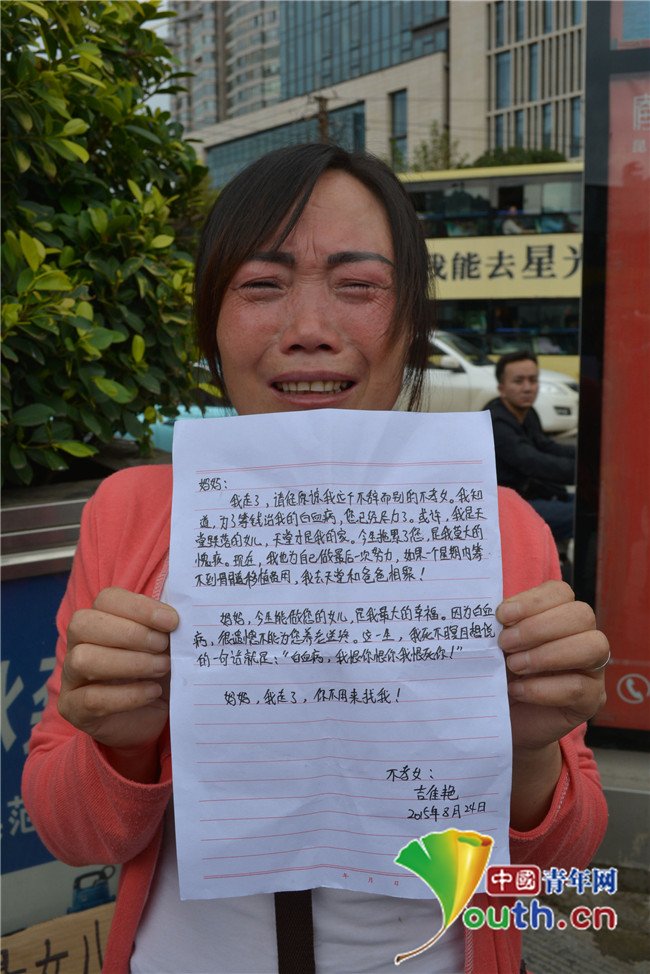 我能去星光
妈妈：
我走了，请您原谅我这个不辞而别的不孝女。我知
道，为了筹钱治我的白血病，您已经尽力了。或许，我是天
堂跌落的女儿，天堂才是我的家。今生拖累了您，是我莫大的
愧疚。现在，我也为自己做最后一次努力，如果一个星期内筹
不到骨髓移植费用，我去天堂和爸爸相聚！
妈妈，今生能做您的女儿，是我最大的幸福。因为白血
病，很遗憾不能为您养老送终。这一生，我死不瞑目想说
的一句话就是：“白血病，我恨你恨你我恨死你！”
妈妈，我走了，你不用来找我！
不孝女：
吉佳艳
2015年8月24日
年 月 日
范
女儿
中國青年网
Youth.cn